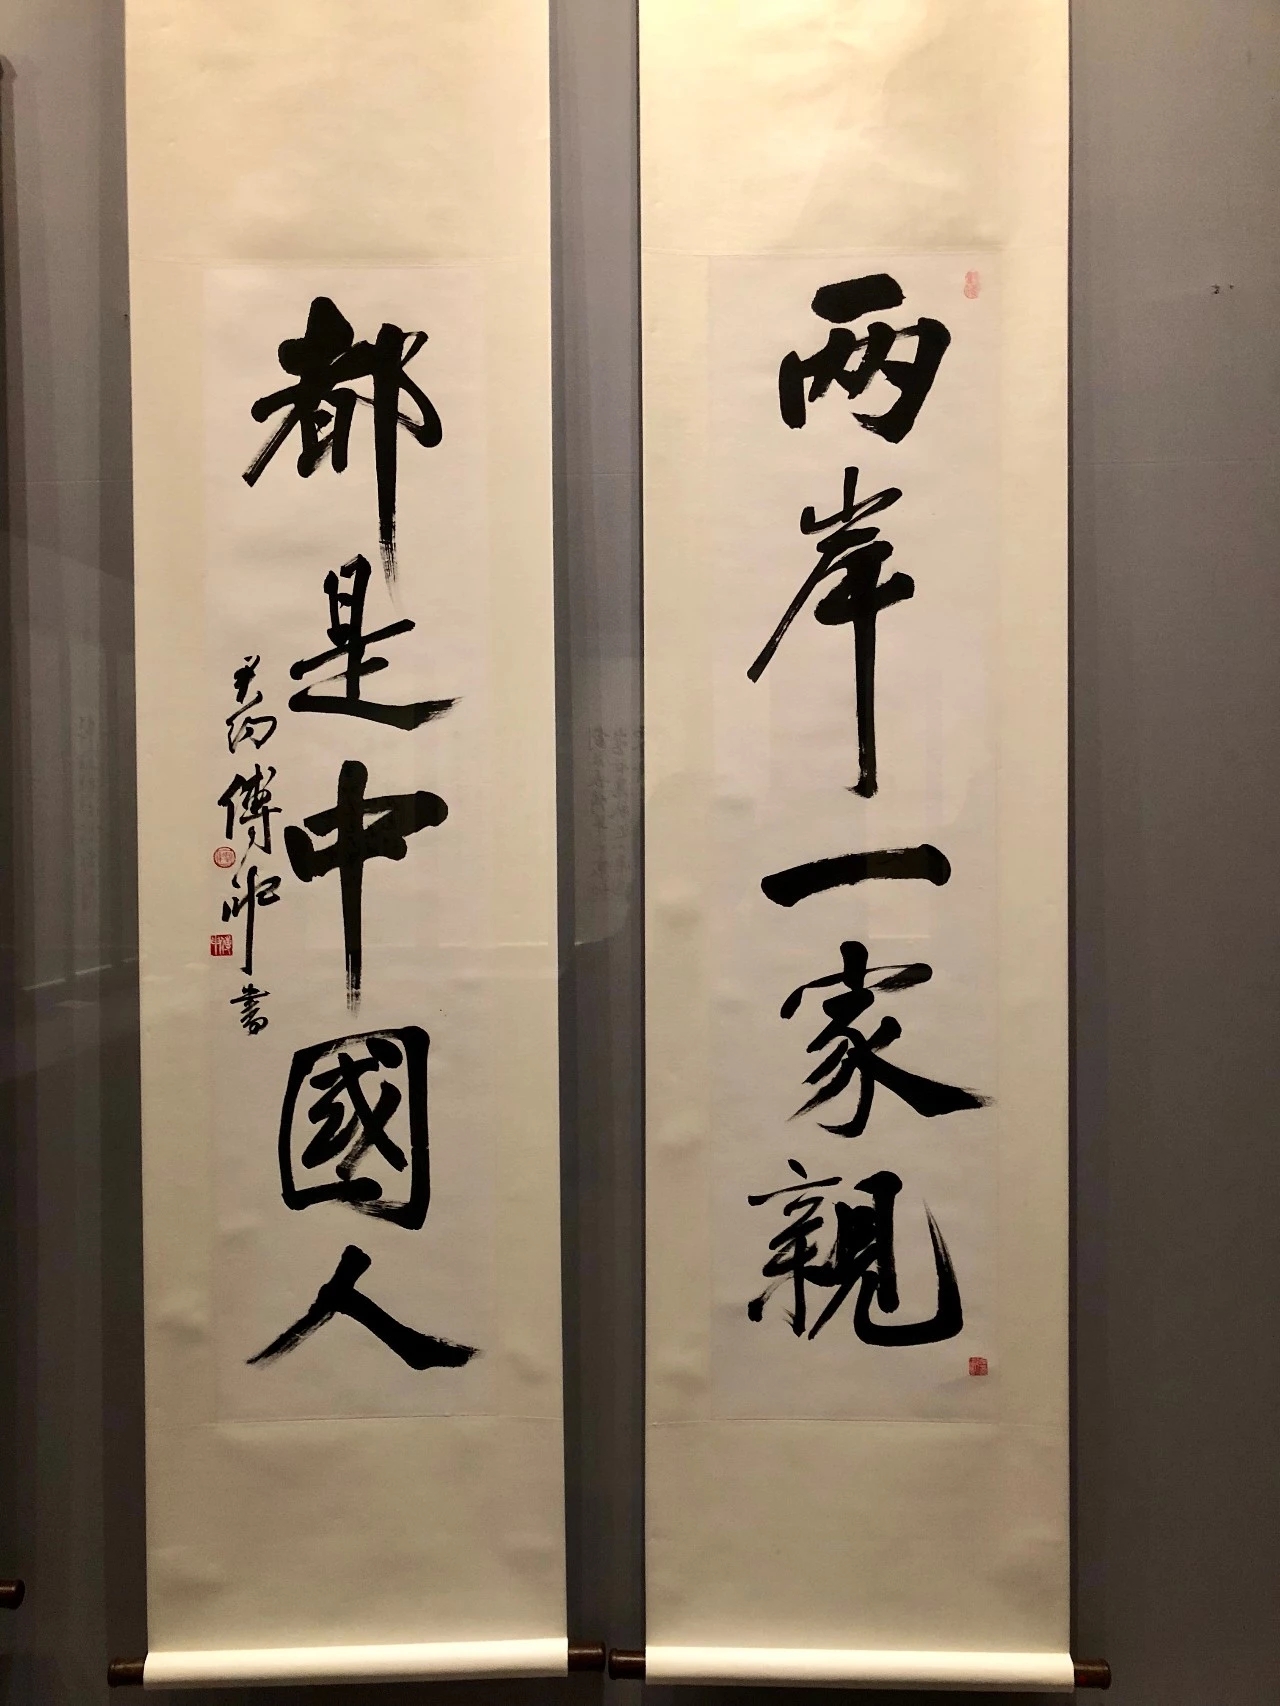 两岸一家親
都是中國人
傅
書